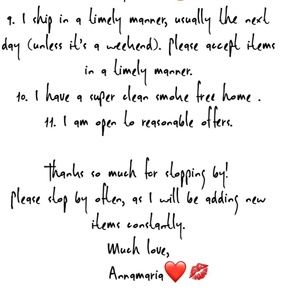 9. I ship in a timely manner, usually the next
day (unless it's a weekend). Please accept items
in a timely manner.
10. I have a super clean smoke free home .
11. I am open to reasonable offers.
Thanks so much for stopping by!
Please stop by often, as I will be adding new
items constantly.
Much love,
Annamaria❤️💋